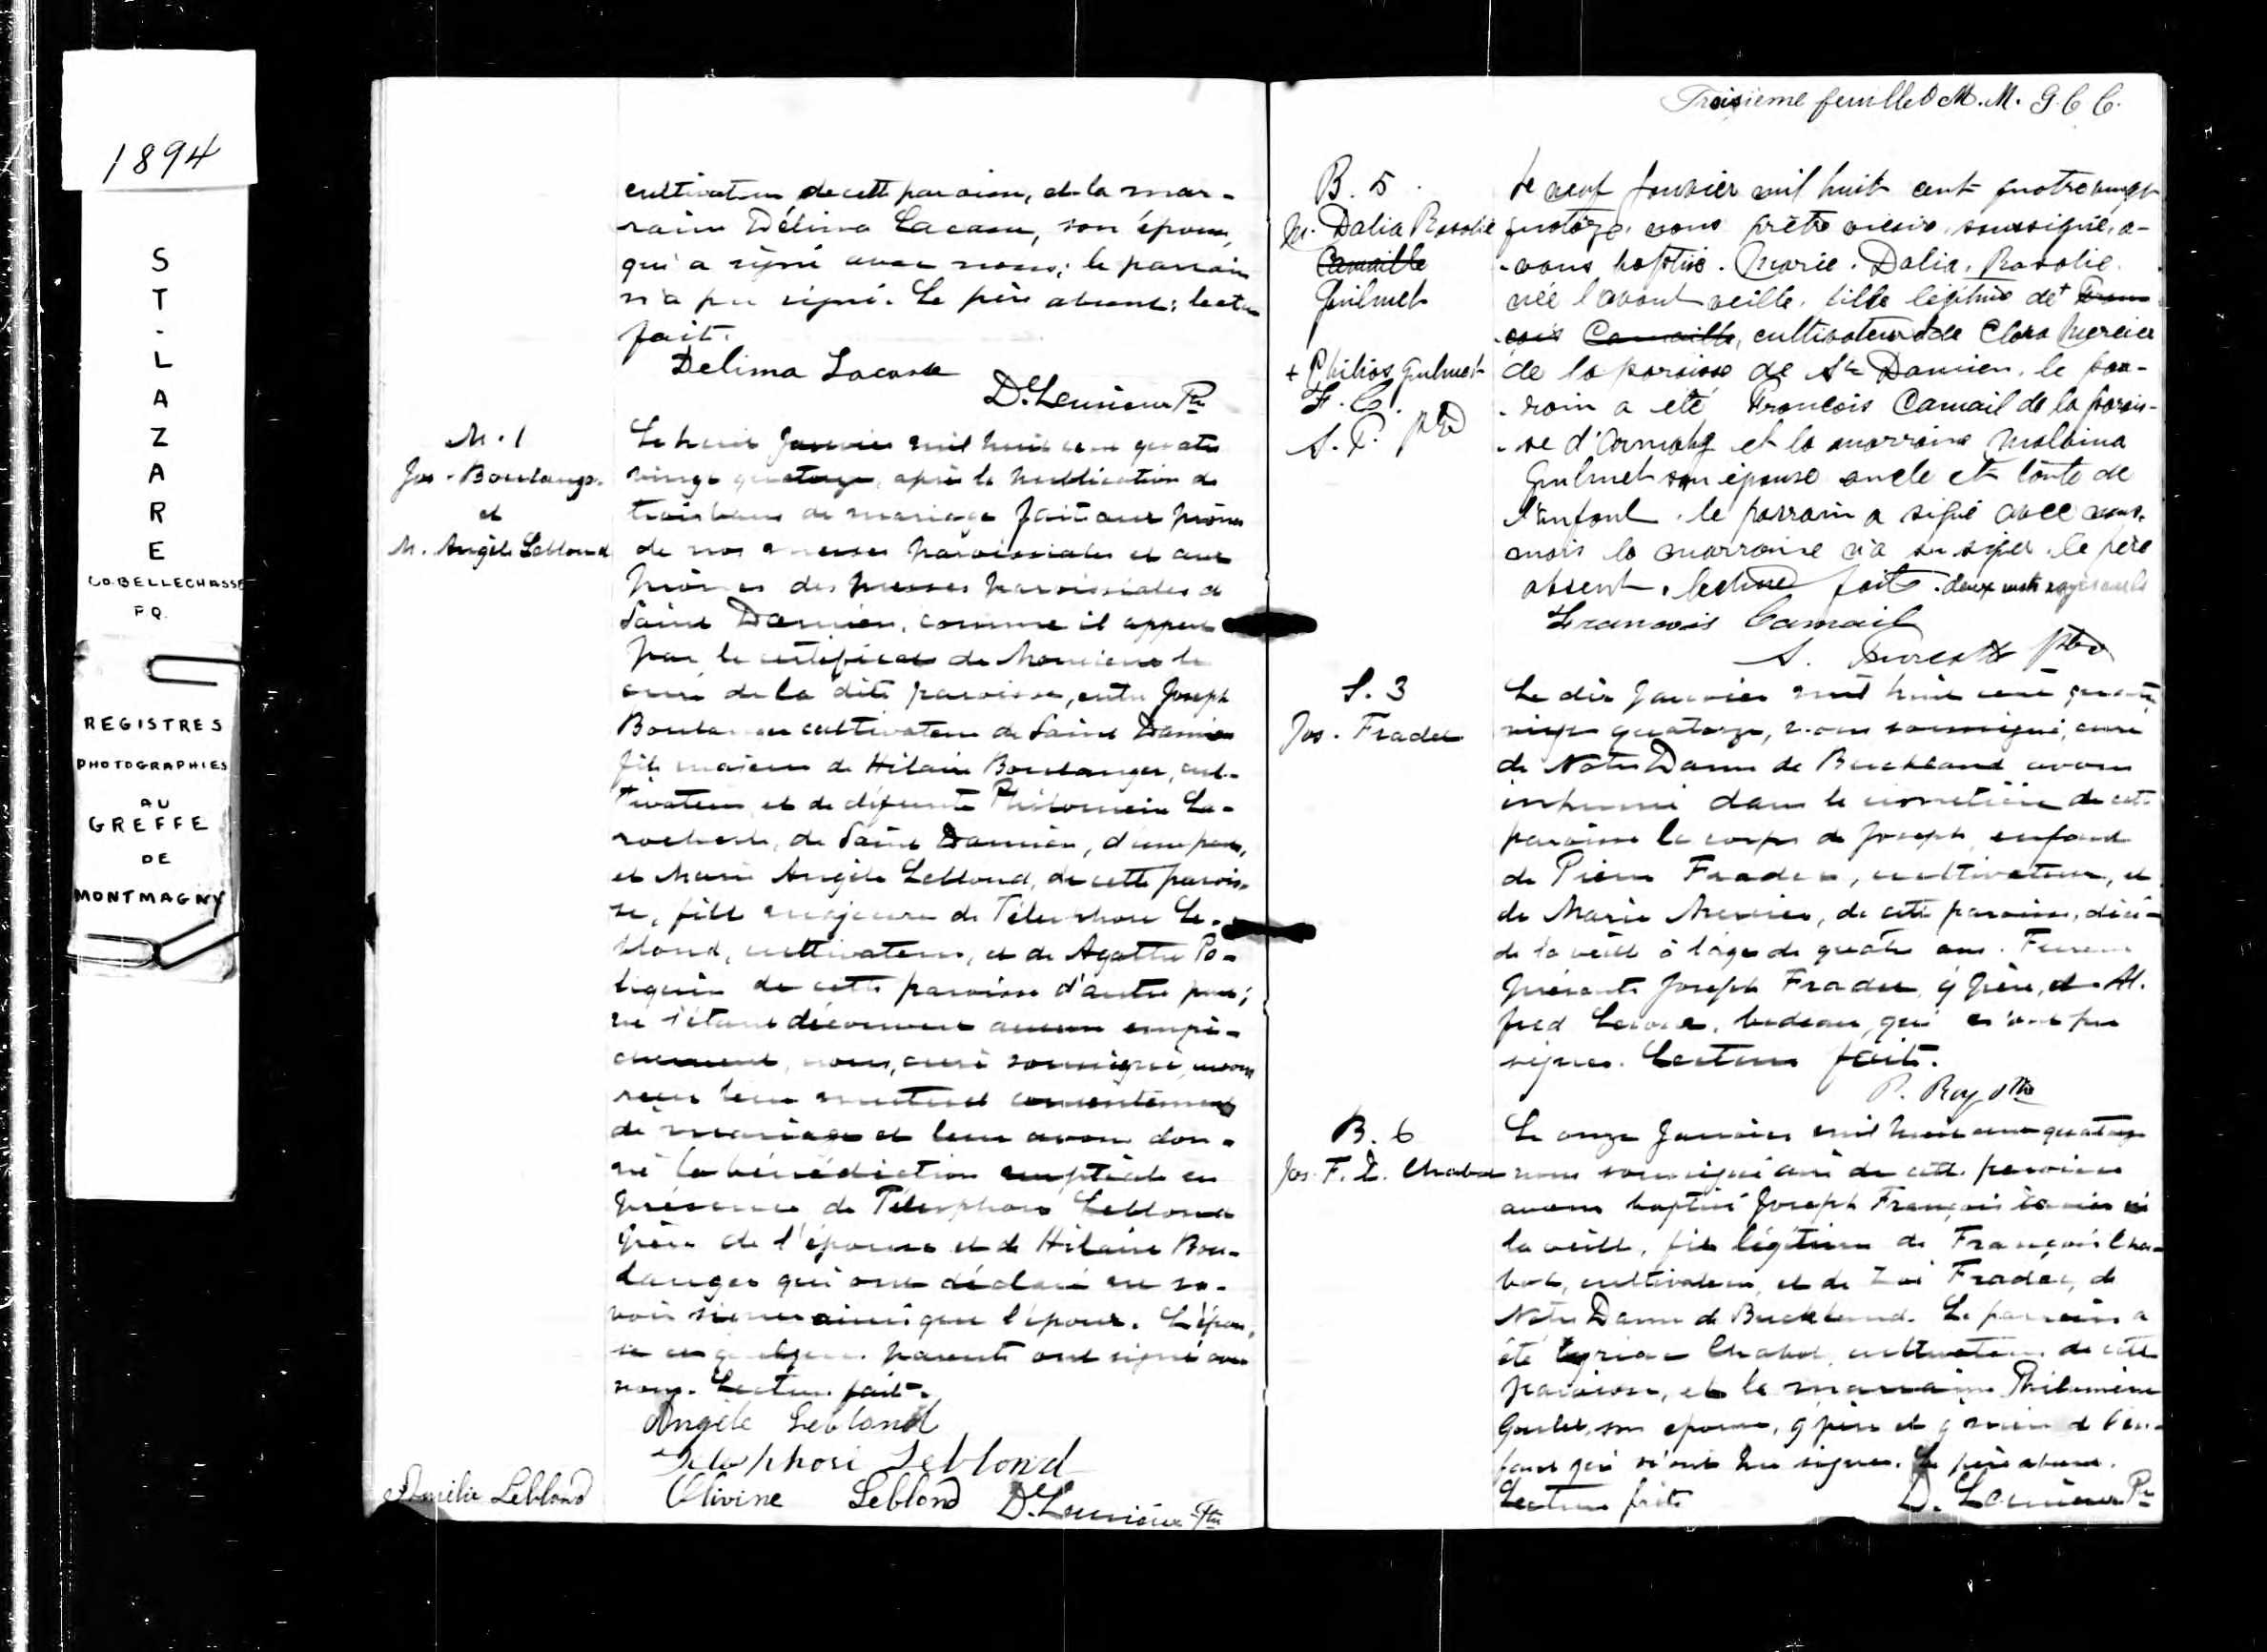 1894
ST-LAZARE
CO. BELLECHASSE
P.Q.
REGISTRES
PHOTOGRAPHIES
AU
GREFFE
DE
MONTMAGNY
cultivateur de cette paroisse, et la mar-
raine Délima Lacasse, son épouse,
qui a signé avec nous; le parrain
n'a pu signé. Le père absent; lecture
fait.
Delima Lacasse
D. Lemieux Ptre
M. 1
Jos. Boulanger
et
M. Angèle Leblond
Le huit Janvier mil huit cent quatre
vingt quatorze, après la publication de
trois bans de mariage fait aux prônes
de nos messes paroissiales et aux
prônes des messes paroissiales de
Saint Damien, comme il appert
par le certificat de Monsieur le
curé de la dite paroisse, entre Joseph
Boulanger cultivateur de Saint Damien
fils majeur de Hilaire Boulanger, cul-
tivateur et de défunte Philomène La-
rochelle, de Saint Damien, d'une part,
et Marie Angèle Leblond, de cette parois-
se, fille majeure de Télesphore Le-
blond, cultivateur, et de Agathe Po-
liquin de cette paroisse d'autre part;
ne s'étant découvert aucun empê-
chement, nous, curé soussigné, avons
reçu leur mutuel consentement
de mariage et leur avons don-
né la bénédiction nuptiale en
présence de Télesphore Leblond
père de l'épouse et de Hilaire Bou-
langer qui ont déclaré ne sa-
voir signer ainsi que l'époux. L'épou-
se et quelques parents ont signé avec
nous. Lecture fait.
Angèle Leblond
Telesphore Leblond
Amélie Leblond Olivine Leblond D. Lemieux Ptre
Troisième feuillet M. M. G. C. C.
B. 5
M. Dalia Rosalie
Camaille
Guilmet
+ Philias Guilmet
F. C.
S. P. ptre
Le neuf Janvier mil huit cent quatre vingt
quatorze, nous prêtre vicaire, soussigné, a-
vons baptisé Marie Dalia Rosalie
née l'avant veille, fille légitime de + Fran-
çois Camaille, cultivateur et de Clara Mercier
de la paroisse de St Damien, le par-
rain a été François Camail de la parois-
se d'Armagh et la marraine Malvina
Guilmet son épouse oncle et tante de
l'enfant. le parrain a signé avec nous,
mais la marraine n'a su signer. le père
absent. lecture faite. deux mots rayés nuls
Francois Camail
S. ptre
S. 3
Jos. Fradet
Le dix Janvier mil huit cent quatre
vingt quatorze, nous soussigné, curé
de Notre Dame de Buckland avons
inhumé dans le cimetière de cette
paroisse le corps de Joseph, enfant
de Pierre Fradet, cultivateur, et
de Marie Mercier, de cette paroisse, décé-
dé la veille à l'âge de quatre ans. Furent
présents Joseph Fradet, g. père, et Al-
fred, bedeau, qui n'ont pu
signer. Lecture fait.
P. Roy Ptre
B. 6
Jos. F. X. Chabot
Le onze Janvier mil huit cent quatorze
nous soussigné curé de cette paroisse
avons baptisé Joseph François Xavier né
la veille, fils légitime de François Cha-
bot, cultivateur, et de Zoé Fradet, de
Notre Dame de Buckland. Le parrain a
été Cyriac Chabot, cultivateur de cette
paroisse, et la marraine Philomène
Goulet, son épouse, g. père et g. mère de l'en-
fant qui n'ont su signer. Le père absent.
Lecture faite D. Lemieux Ptre